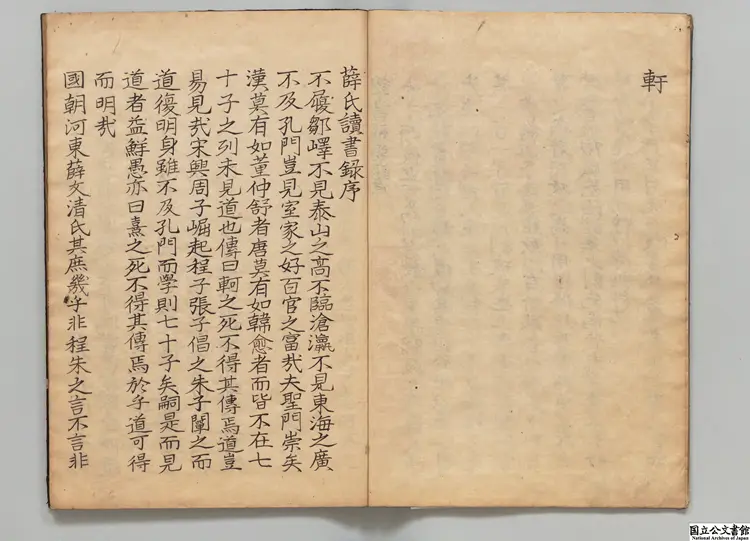 軒
薛氏讀書錄序
不履鄒嶧不見泰山之高不臨滄瀛不見東海之廣
不及孔門豈見室家之好百官之富㢤夫聖門崇矣
漢莫有如董仲舒者唐莫有如韓愈者而皆不在七
十子之列未見道也傳曰軻之死不得其傳焉道豈
易見㢤宋興周子崛起程子張子倡之朱子闡之而
道復明身雖不及孔門而學則七十子矣嗣是而見
道者益鮮愚亦曰熹之死不得其傳焉於乎道可得
而明㢤
國朝河東薛文清氏其庶幾乎非程朱之言不言非
国立公文書館
National Archives of Japan